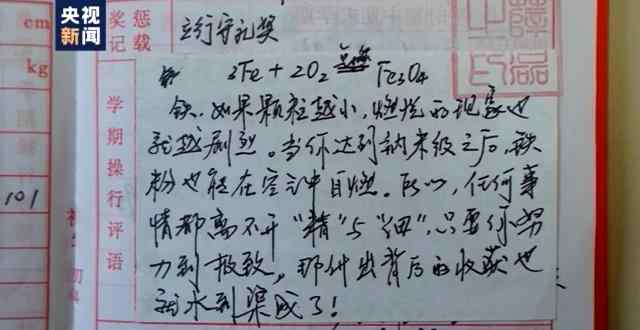 央视
新闻
cm
kg
101
奖惩
记载
立行守礼奖
学期操行评语
3Fe + 2O2 点燃 Fe3O4
铁，如果颗粒越小，燃烧的现象也
就越剧烈。当你达到纳米级之后，铁
粉也能在空气中自燃。所以，任何事
情都离不开“精”与“细”，只要你努
力到极致，那付出背后的收获也
就水到渠成了！